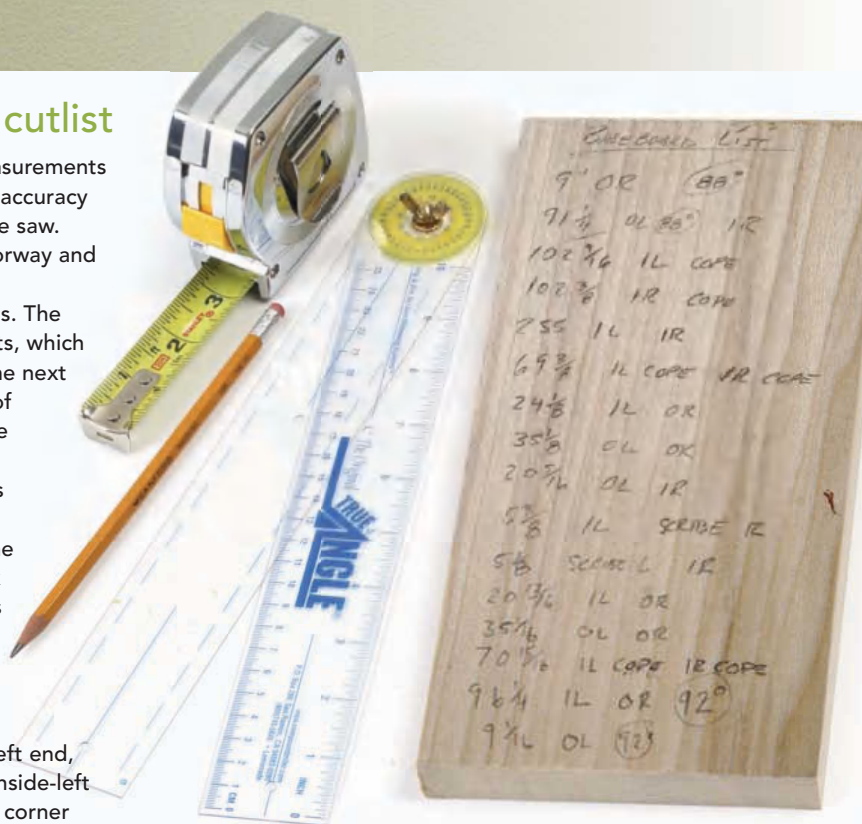 cutlist
asurements
accuracy
e saw.
orway and
s. The
ts, which
ne next
of
e
s
ne
s
eft end,
nside-left
corner
3
2
1
The Original
TRUE
ANGLE
INCH
CM
BASEBOARD LIST
9" OR 88°
91 1/4 OL 88° IR
102 3/16 IL COPE
102 3/8 IR COPE
255 IL IR
69 3/4 IL COPE IR COPE
24 1/8 IL OR
35 1/8 OL OR
20 5/16 OL IR
5 3/8 IL SCRIBE R
5 1/8 SCRIBE L IR
20 13/16 IL OR
35 1/16 OL OR
70 15/16 IL COPE IR COPE
96 1/4 IL OR 92°
OL 92°